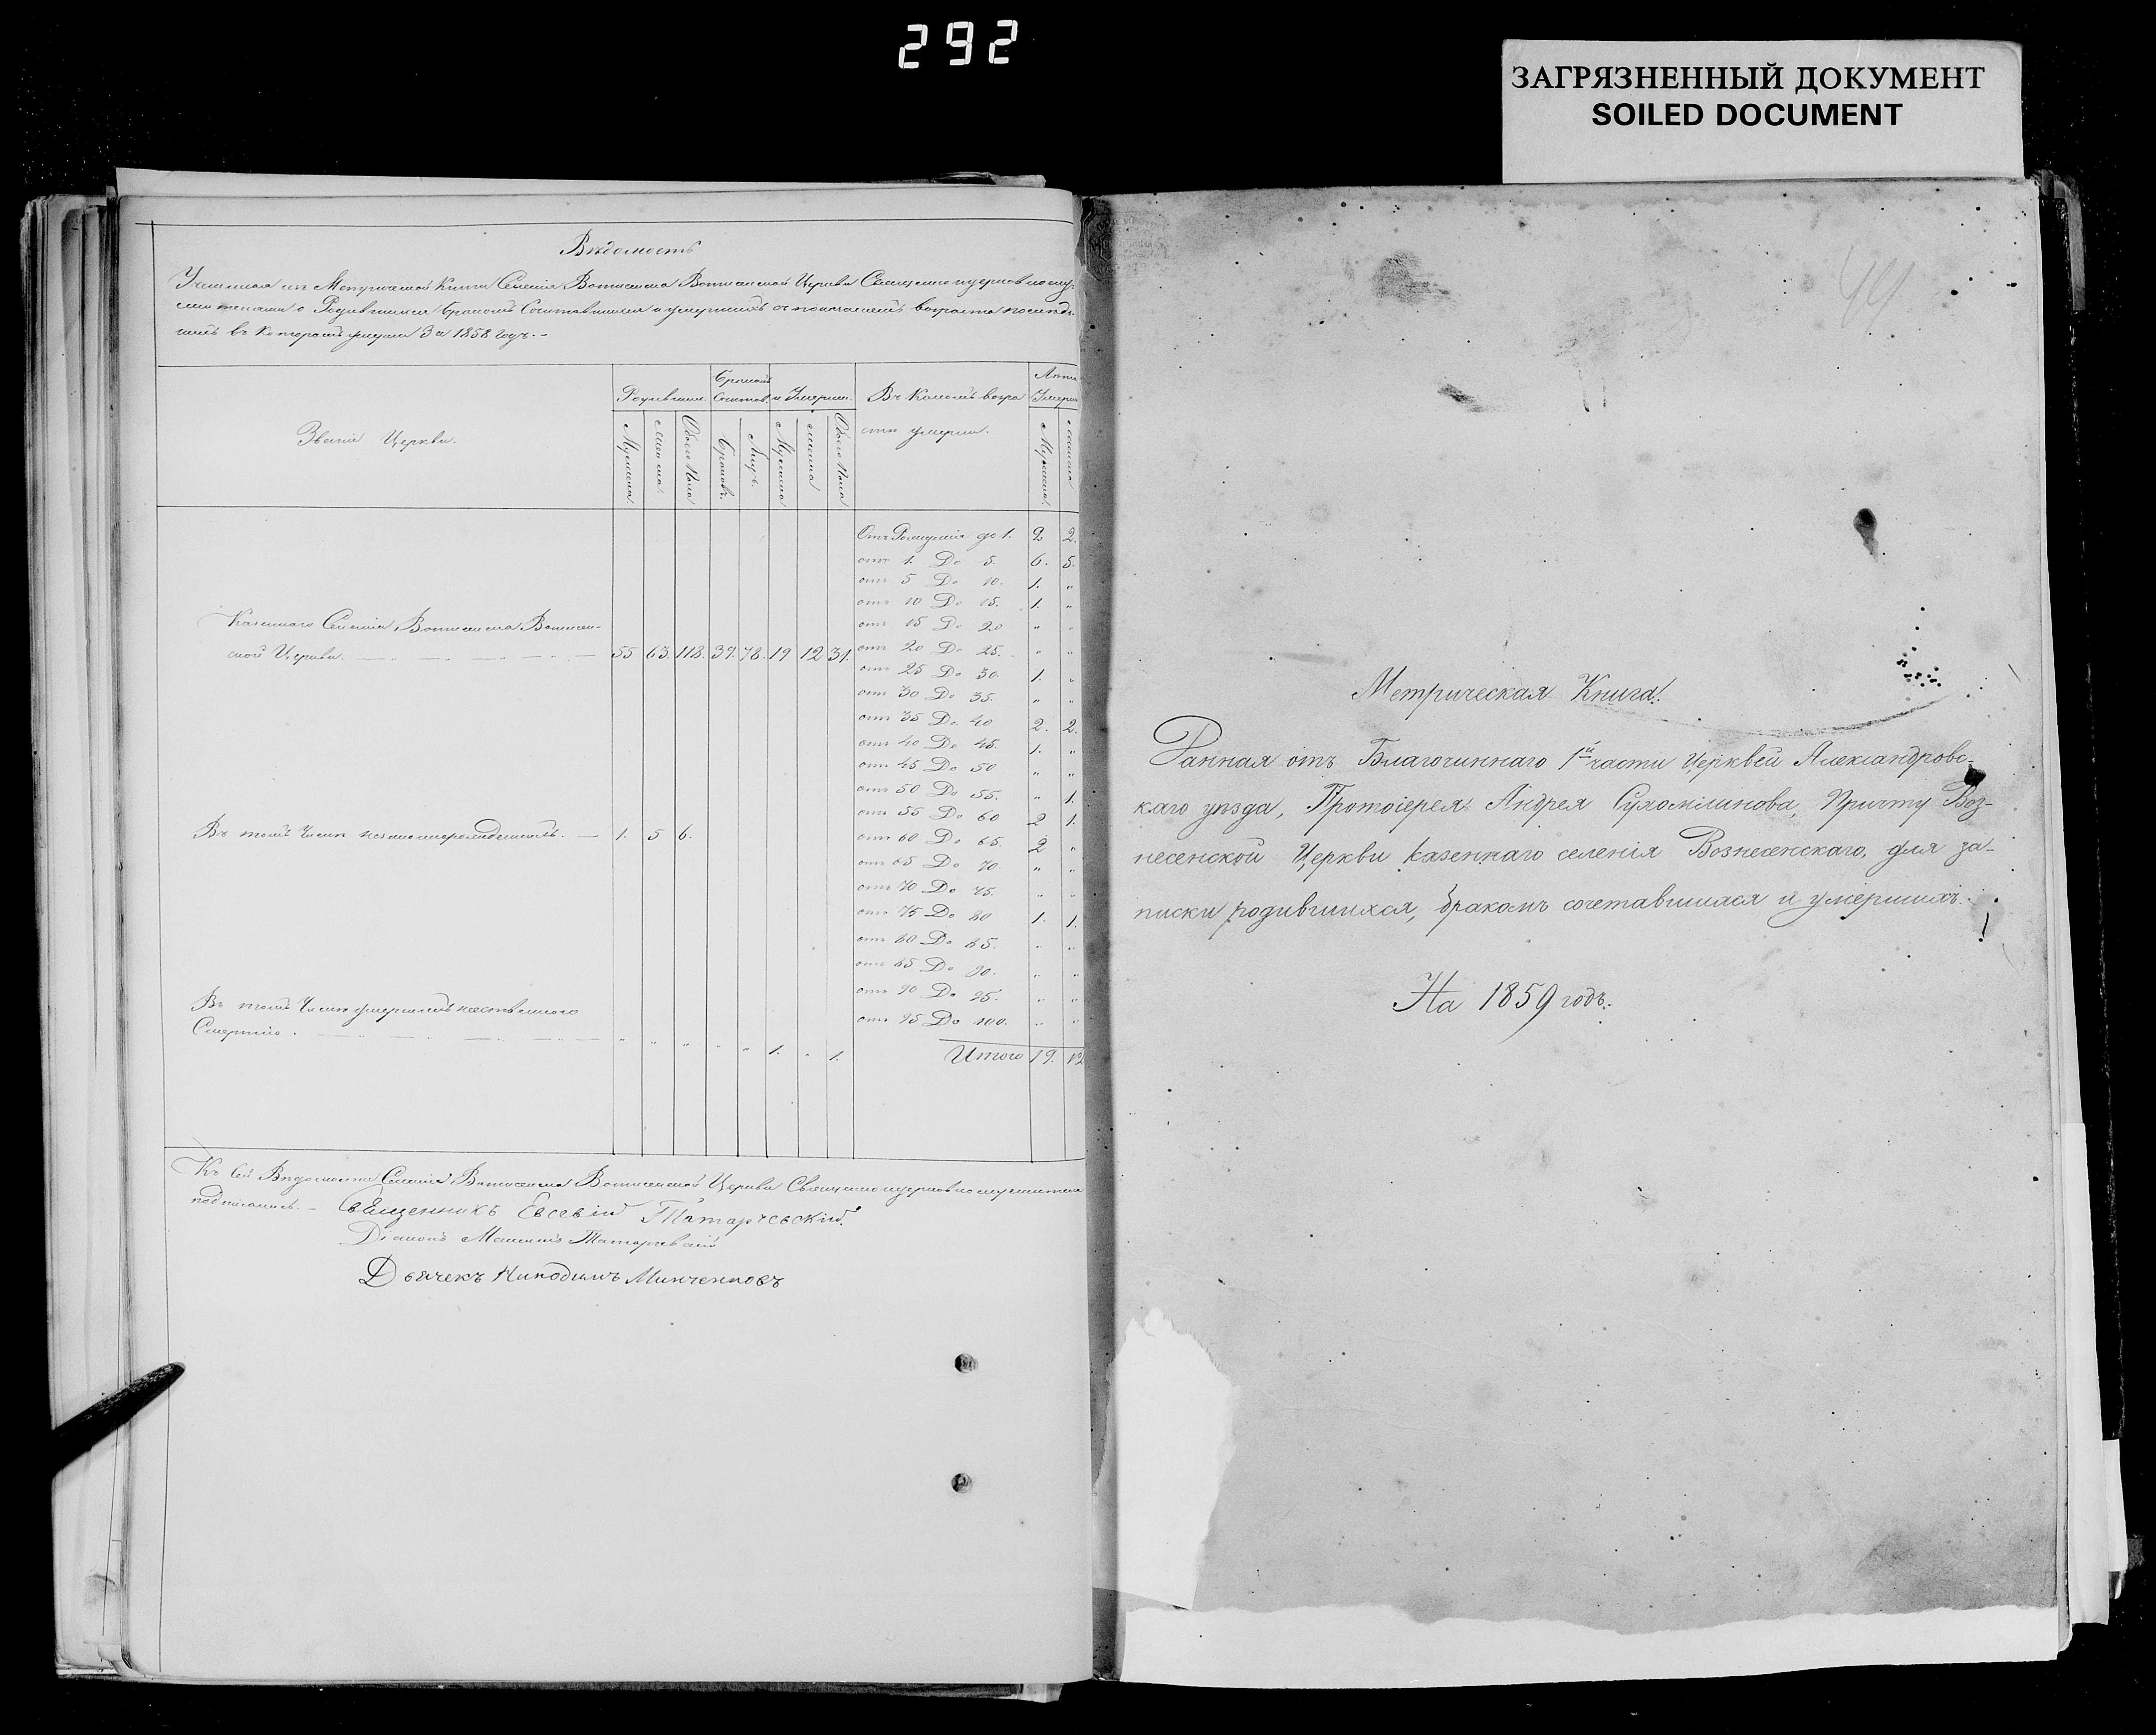 292
ЗАГРЯЗНЕННЫЙ ДОКУМЕНТ
SOILED DOCUMENT
Вѣдомость
Учиненная изъ Метрической Книги Селенія Вознесенска Вознесенской Церкви Священноцерковнослу-
жителями о Родившихся бракомъ Сочетавшихся и умершихъ
въ которомъ умерли За 1858 годъ.-
Званіе Церкви.
Родивших.
Бракомъ Сочетав.
и Умерш.
Въ Какомъ возра
сте умерли.
Лета
Умерш
Мужеска.
Женска.
Обоего Пола
Браковъ.
Лицъ.
Мужеска
женска
Обоего Пола
Мужеска.
женска
Отъ Рожденія до 1. 2 2.
отъ 1. До 5. 6. 5.
отъ 5 До 10. 1. "
отъ 10 До 15. 1. "
отъ 15 До 20 " "
отъ 20 До 25. " "
отъ 25 До 30. 1. "
отъ 30 До 35. " "
отъ 35 До 40 2. 2.
отъ 40 До 45. 1. "
отъ 45 До 50 " "
отъ 50 До 55. " 1.
отъ 55 До 60 2 1.
отъ 60 До 65. 2 "
отъ 65 До 70 " "
отъ 70 До 75. " "
отъ 75 До 80 1. 1.
отъ 80 До 85. " "
отъ 85 До 90. " "
отъ 90 До 95. " "
отъ 95 До 100. " "
Итого 19. 12
Казеннаго Селенія Вознесенска Вознесен-
ской Церкви. 55 63. 118. 39. 78. 19 12 31.
Въ томъ Числѣ незаконнорожденныхъ. — 1. 5 6.
Въ томъ Числѣ умершихъ
Смертію. " " " " " 1. " 1.
Къ сей Вѣдомости Селенія Вознесенска Вознесенской Церкви Священноцерковнослужители
подписались. - Священникъ Евсевій Татарчевскій.
Діаконъ Татарчевскій
Дьячекъ Никодимъ Минченковъ
44
Метрическая Книга.
Данная отъ Благочиннаго 1й части Церквей Александровс-
каго уѣзда, Протоіерея Андрея Сухомлинова, Причту Воз-
несенской Церкви казеннаго селенія Вознесенскаго, для за-
писки родившихся, бракомъ сочетавшихся и умершихъ.
На 1859 годъ.